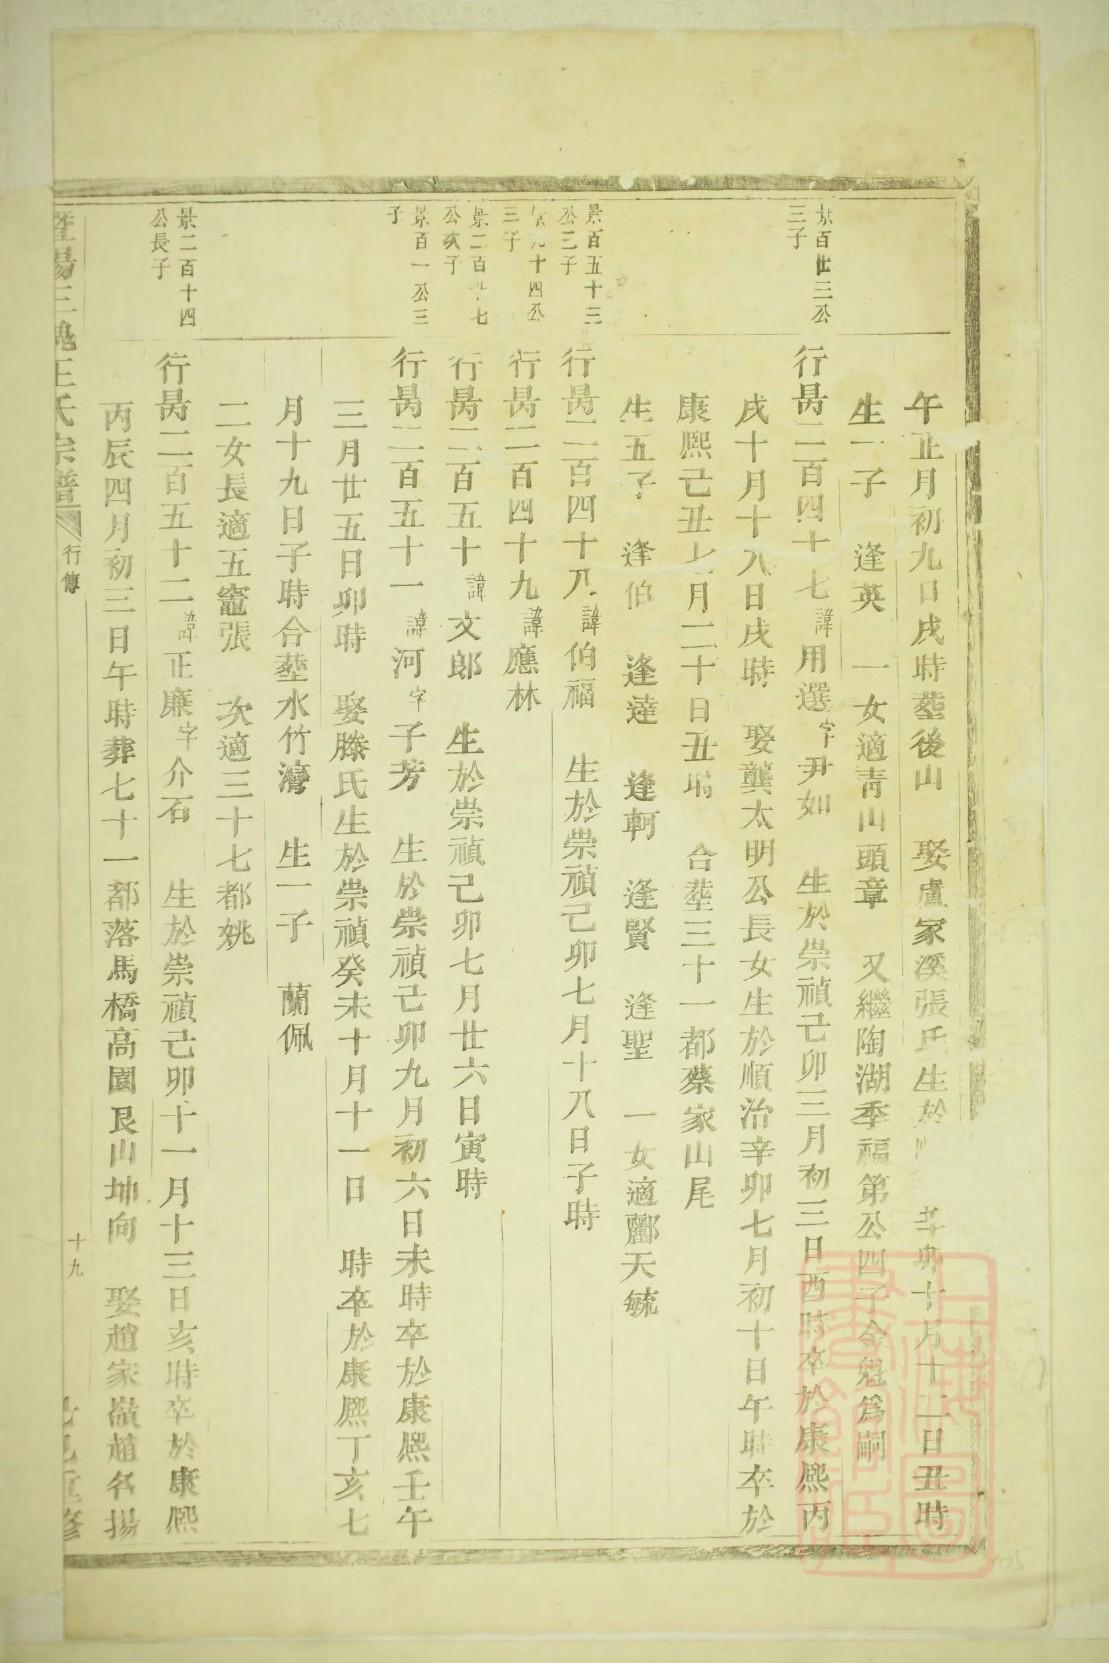 午正月初九日戌時塟後山　娶盧家溪張氏生於　辛卯十月十二日丑時
生一子　逢英　一女適青山頭章　又繼陶湖季福第公四子金魁爲嗣
景百廿三公
三子
行昺二百四十七諱用選字尹如　生於崇禎己卯三月初三日酉時卒於康熙丙
戌十月十八日戌時　娶龔太明公長女生於順治辛卯七月初十日午時卒於
康熙己丑七月二十日丑時　合塟三十一都蔡家山尾
生五子　逢伯　逢達　逢軻　逢賢　逢聖　一女適酈天毓
景百五十三
公三子
行昺二百四十八諱伯福　生於崇禎己卯七月十八日子時
九十四公
三子
行昺二百四十九諱應林
景二百廿七
公次子
行昺二百五十諱文郎　生於崇禎己卯七月廿六日寅時
景百一公三
子
行昺二百五十一諱河字子芳　生於崇禎己卯九月初六日未時卒於康熙壬午
三月廿五日卯時　娶滕氏生於崇禎癸未十月十一日　時卒於康熙丁亥七
月十九日子時合塟水竹灣　生一子　蘭佩
二女長適五竈張　次適三十七都姚
景二百十四
公長子
行昺二百五十二諱正廉字介石　生於崇禎己卯十一月十三日亥時卒於康熙
丙辰四月初三日午時葬七十一都落馬橋高園艮山坤向　娶趙家嶺趙名揚
暨陽三槐王氏宗譜　行傳　十九　重修
上海圖書館藏